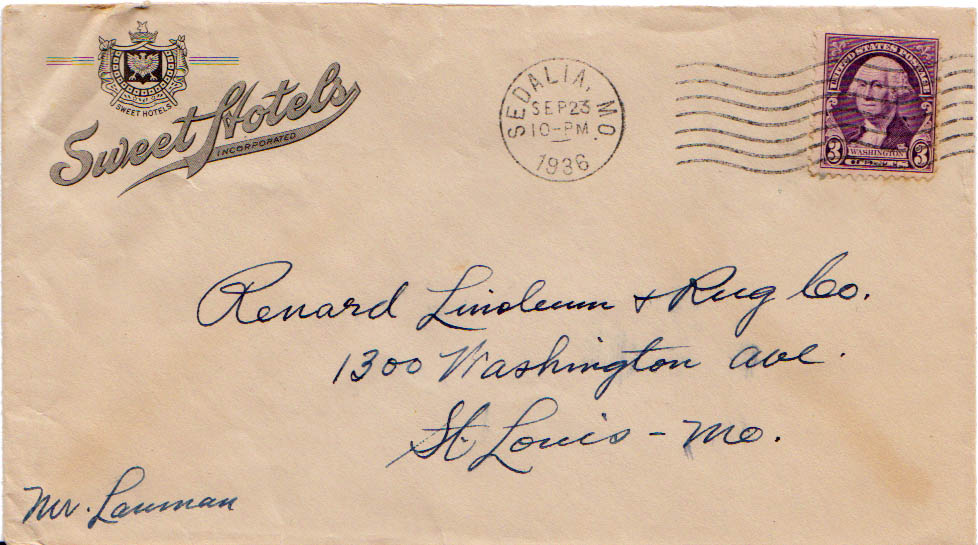 SWEET HOTELS
Sweet Hotels
INCORPORATED
SEDALIA, MO.
SEP 23
10-PM
1936
UNITED STATES POSTAGE
3 WASHINGTON 3
Renard Linoleum & Rug Co.
1300 Washington Ave.
St. Louis - Mo.
Mr. Lauman